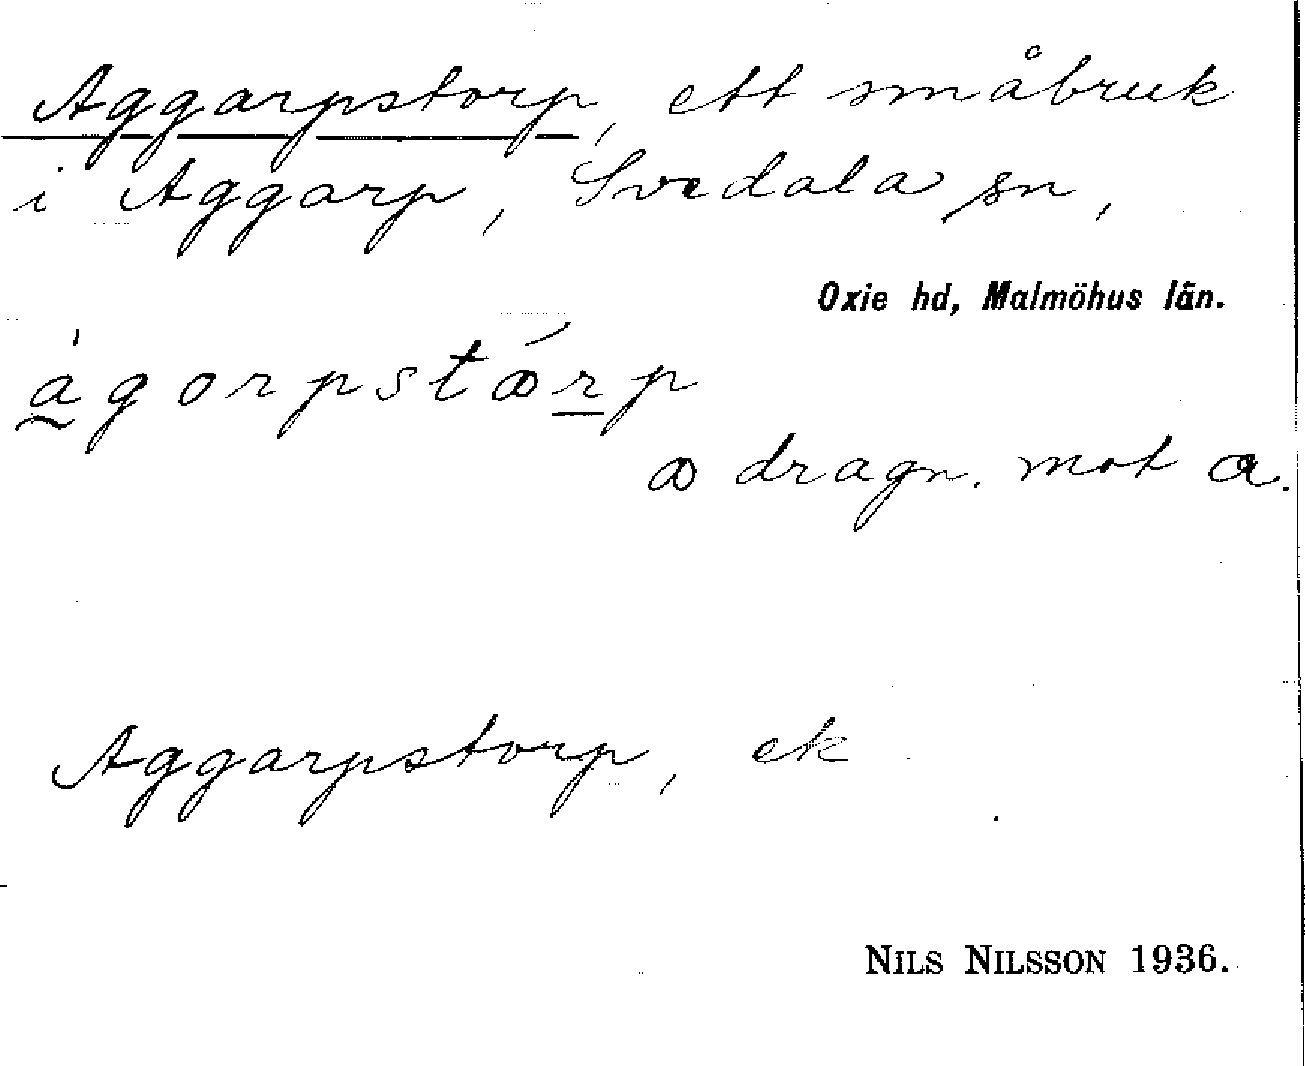 Aggarpstorp, ett småbruk
i Aggarp, Svedala sn,
Oxie hd, Malmöhus län.
àgorpstꝏ́rp
ꝏ dragn. mot a.
Aggarpstorp, ek
NILS NILSSON 1936.